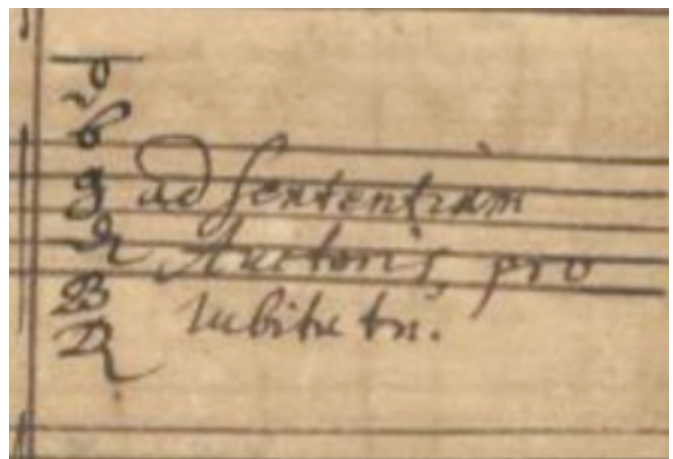 b
g ad sententiam
d Auctoris, pro
B lubitu tu.
D